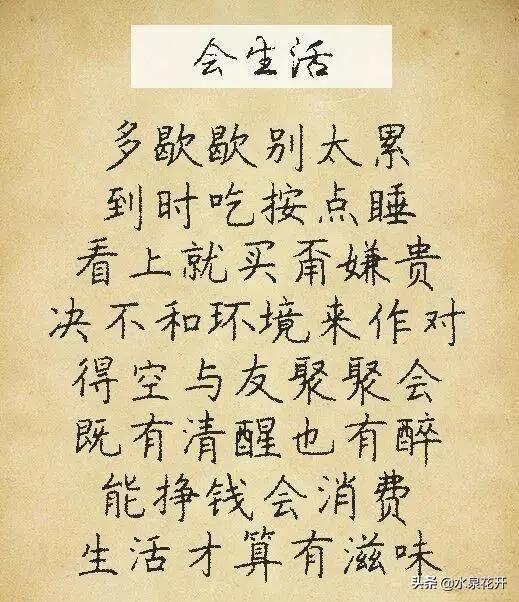 会生活
多歇歇别太累
到时吃按点睡
看上就买甭嫌贵
决不和环境来作对
得空与友聚聚会
既有清醒也有醉
能挣钱会消费
生活才算有滋味
头条 @水泉花开